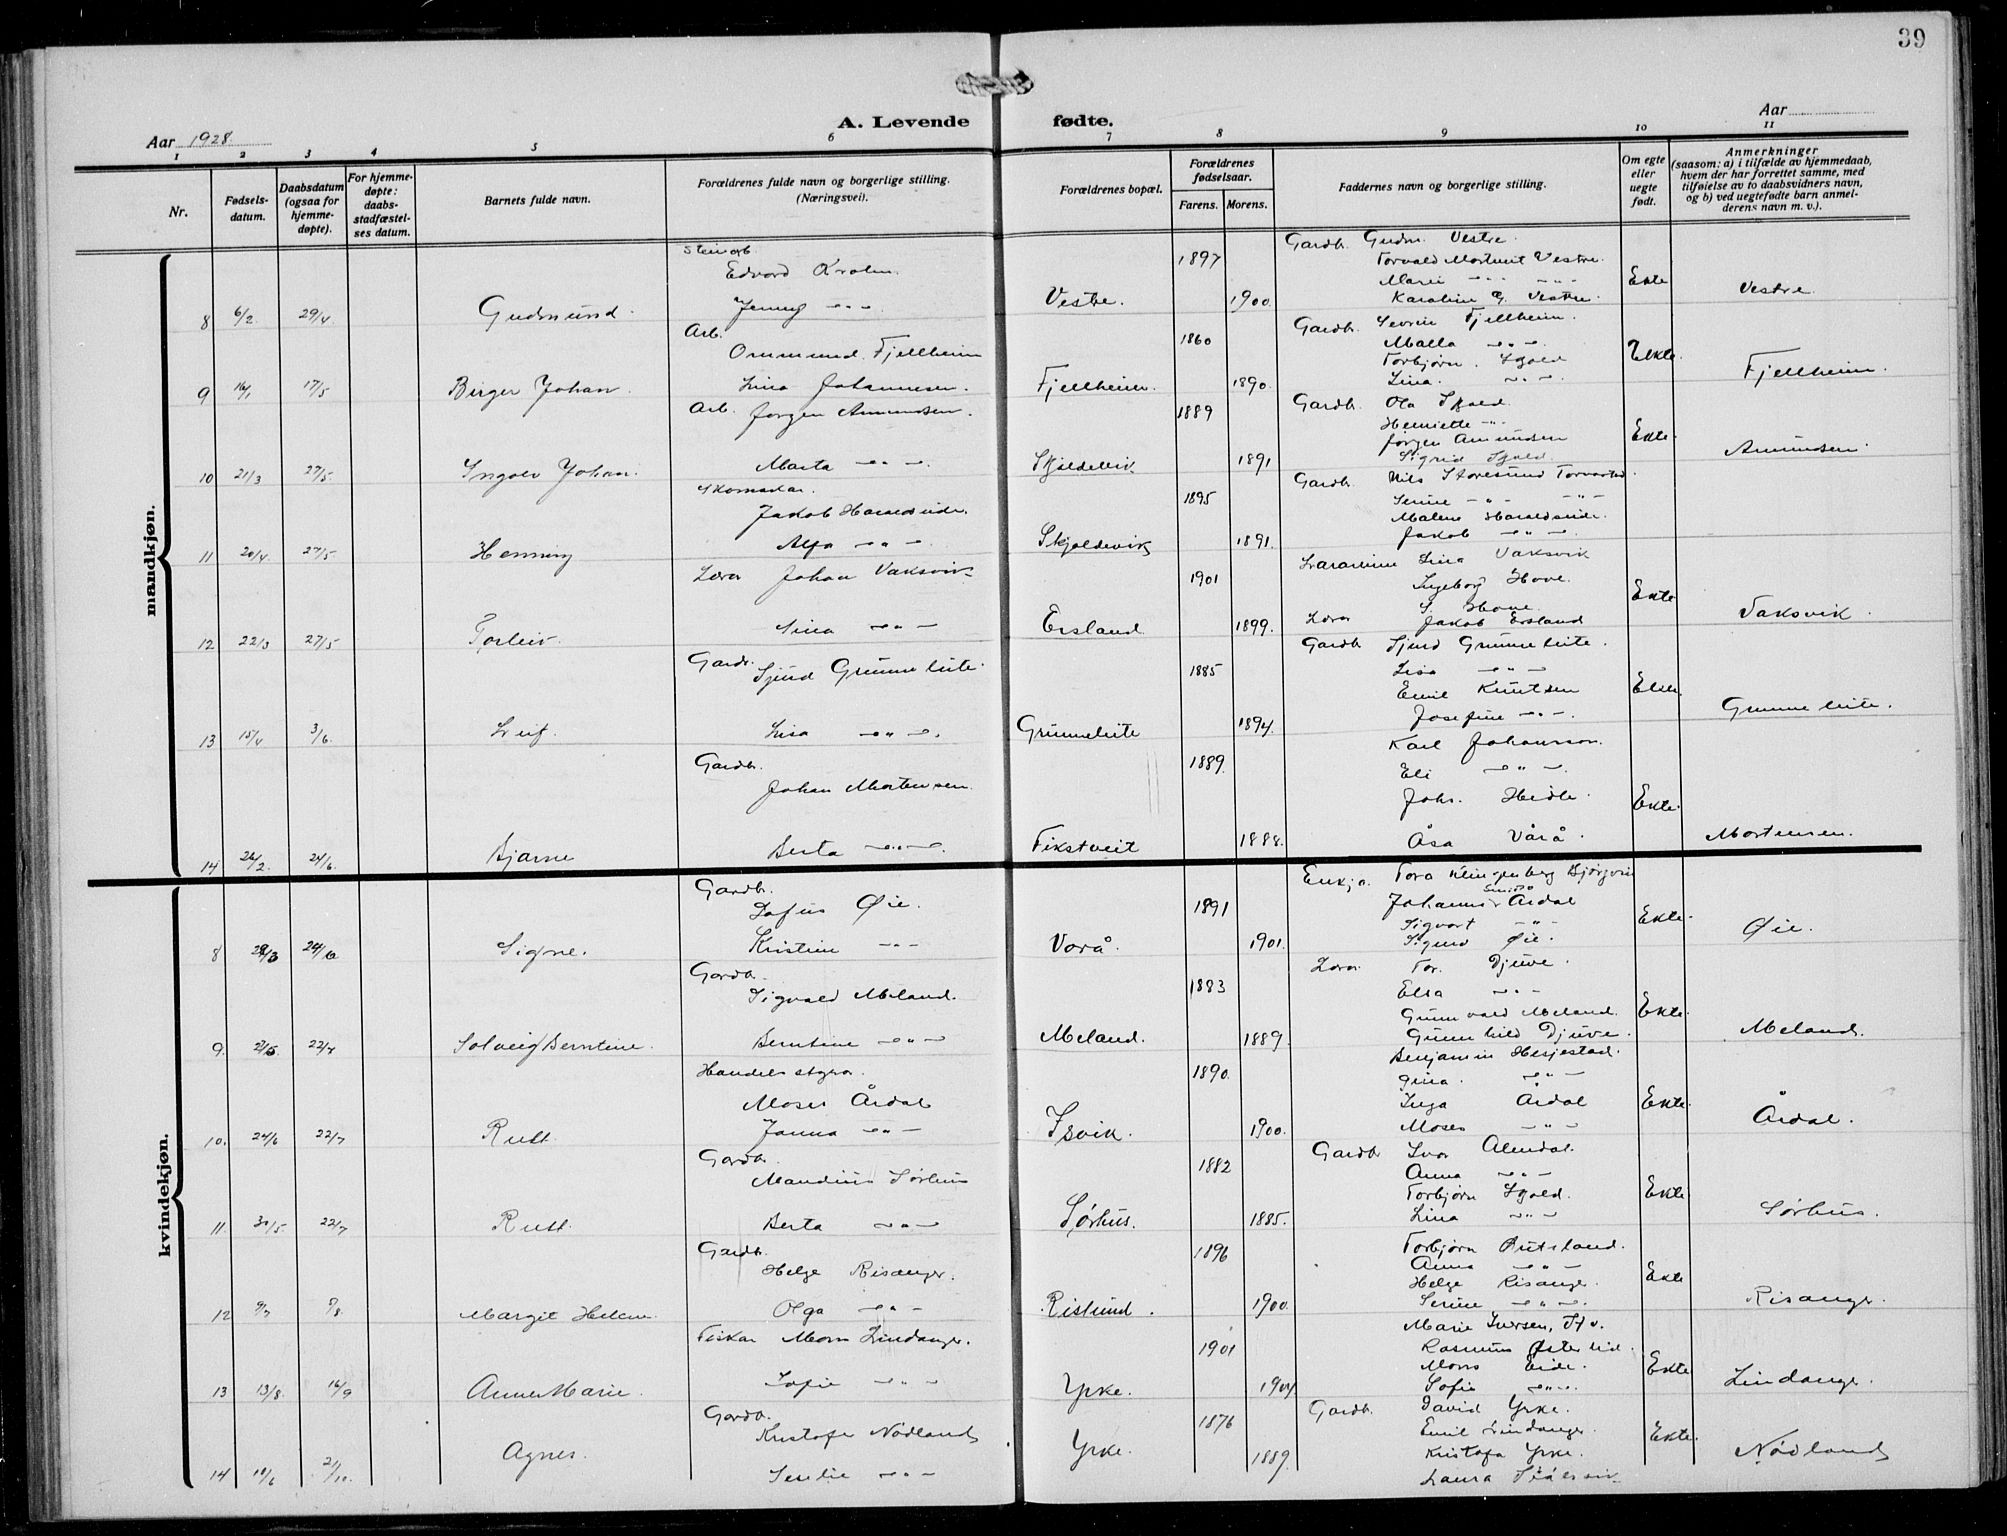 39
Aar 1928
A. Levende fødte.
Aar
1 2 3 4 5 6 7 8 9 10 11
Nr.
Fødsels-
datum.
Daabsdatum
(ogsaa for
hjemme-
døpte).
For hjemme-
døpte:
daabs-
stadfæstel-
ses datum.
Barnets fulde navn.
Forældrenes fulde navn og borgerlige stilling.
(Næringsvei).
Forældrenes bopæl.
Forældrenes
fødselsaar.
Farens. Morens.
Faddernes navn og borgerlige stilling.
Om egte
eller
uegte
født.
Anmerkninger
(saasom: a) i tilfælde av hjemmedaab,
hvem der har forrettet samme, med
tilføielse av to daabsvidners navn,
og b) ved uegtefødte barn anmel-
derens navn m. v.).
mandkjøn.
Steinarb. 1897 Gardb. Gudm. Vestre.
Edvard Torvald Vestre.
Marie -"- -"- Ekte
8 6/2 29/4 Gudmund. Jenny -"- Vestre. 1900. Karoline G. Vestre. Vestre
Arb. 1860 Gardb. Sevrin Fjellheim.
Ommund Fjellheim Malla -"-
Torbjørn Skjold Ekte.
9 16/1 17/5 Birger Johan. Lina Johannesen. Fjellheim. 1890. Lina. -"- Fjellheim.
Arb. Jørgen Amundsen. 1889 Gardb. Ola Skjold
Henriette -"-
Jørgen Amundsen Ekte
10 21/3 27/5 Ingolv Johan. Marta -"- Skjoldevik 1891 Sigrid Skjold. Amundsen
Skomakar. 1895 Gardb. Nils Storesund Torvastad
Jakob Haraldseide. Serine -"- -"-
Malene Haraldseide.
11 20/4. 27/5 Henning Alfa -"- Skjoldevik 1891. Jakob -"-
Lærar Johan Vaksvik 1901 Lærarinne Lina Vaksvik
Ingeborg Hove.
S. Hove. Ekte
12 22/3 27/5 Torleiv. Nina -"- Ersland 1899. Lærar Jakob Ersland Vaksvik.
Gardb. Sjurd Grunneleite. 1885 Gardb Sjurd Grunneleite.
Lisa -"-
Emil Knutsen Ekte.
13 15/4 3/6. Leif. Lisa -"- Grunneleite 1894. Josefine -"- Grunneleite.
Gardb. 1889. Karl Johansson.
Johan Mortensen. Eli -"-
Johs. Heidle. Ekte.
14 26/2. 24/6. Bjarne Berta -"- Fikstveit 1888. Åsa Vårå. Mortensen.
kvindekjøn.
Gardb. 1891 Enkja. Tora Klingenberg Bjørgvin
Øie. Johannes Årdal
Sigvart -"- Ekte.
8 24/6 Signe. Kristine -"- Vorå. 1901. Sigurd Øie. Øie.
Gardb. 1883 Lærar Tor. Djuve.
Sigvald Meland. Elsa -"-
Gunnvald Meland. Ekte.
9. 2/5. 22/7 Solveig Berntine. Berntine -"- Meland. 1889. Gunnhild Djuve. Meland.
Handelsstyrar. 1890. Benjamin Hesjestad.
Moses Årdal Gina. -"-
Inga Årdal Ekte.
10. 24/6 22/7 Rutt. Janna -"- Isvik. 1900. Moses -"- Årdal.
Gardb. 1882 Gardb Ivar Alendal.
Mandius Sørhus Anna -"-
Torbjørn Skjold. Ekte
11. 30/5 22/7 Rutt. Berta -"- Sørhus. 1885. Lina -"- Sørhus.
Gardb. 1896 Torbjørn
Helge Risanger. Anna -"-
Helge Risanger. Ekte
12 9/7 Margit Helene. Olga -"- Rislund. 1900. Serine -"- Risanger.
Fiskar Mons Lindanger. 1901 Marie Iversen,
Rasmus Østerhus.
Mons Eide. Ekte
13 13/8. 16/9 Anna Marie. Sofie -"- Yrke. 1904. Sofie -"- Lindanger.
Gardb. 1876 Gardb. David Yrke.
Kristofer Nødland Emil Lindanger. Ekte.
14 10/6 21/10. Agnes. Serelie -"- Yrke. 1889. Kristofa Yrke. Nødland
Laura